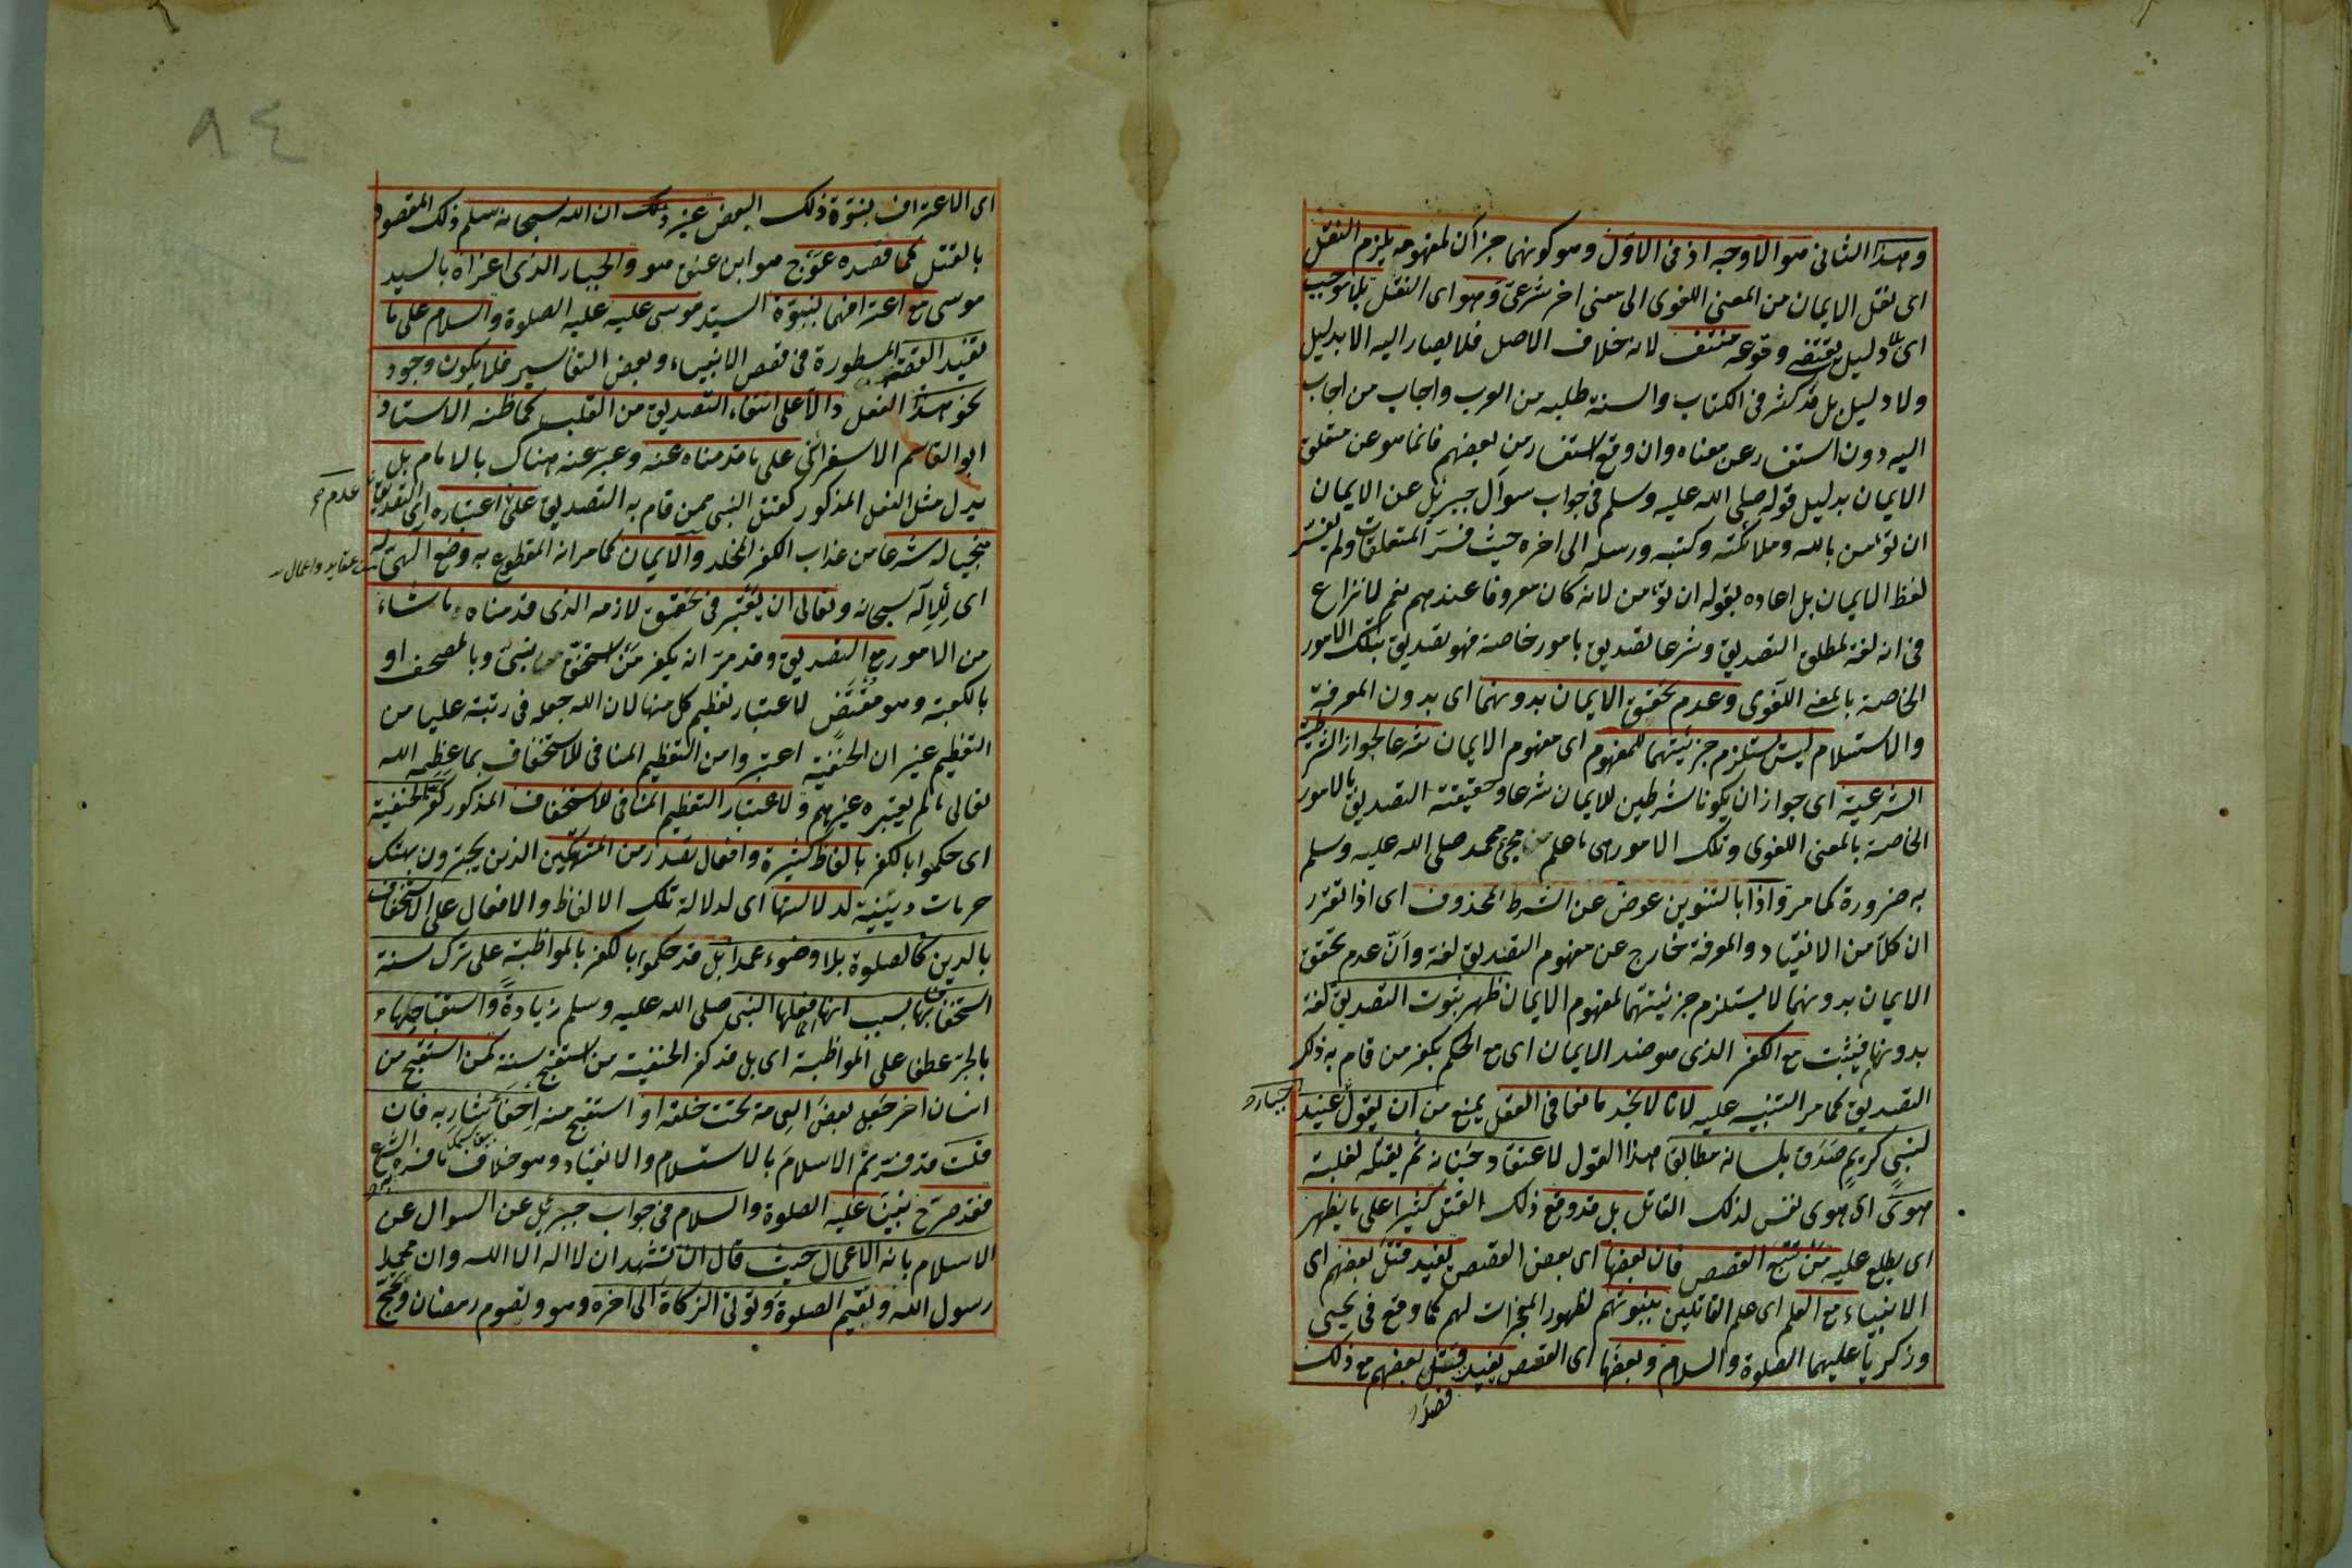 وهذا الثانى هو الاوجه اذ فى الاول وهو كونهما جزآن لمفهومه يلزم النقل
اى نقل الايمان من المعنى اللغوى الى معنى اخر شرعى وهو اى النقل بلا موجب
اى بلا دليل يقتضے وقوعه منتف لانه خلاف الاصل فلا يصار اليه الا بدليل
ولا دليل بل قد كثر فى الكتاب والسنة طلبه من العرب واجاب من اجاب
اليه دون استفسار عن معناه وان وقع استفسار من بعضهم فانما هو عن متعلق
الايمان بدليل قوله صلى الله عليه وسلم فى جواب سوآل جبرئل عن الايمان
ان تؤمن بالله وملائكته وكتبه ورسله الى اخره حيث فسر المتعلقات ولم يفسر
لفظ الايمان بل اعاده بقوله ان تؤمن لانه كان معروفا عندهم نعم لا نزاع
فى انه لغة لمطلق التصديق وشرعا تصديق بامور خاصة فهو تصديق بتلك الامور
الخاصة بالمعنے اللغوى وعدم تحقق الايمان بدونهما اى بدون المعرفة
والاستسلام ليس يستلزم جزئيتهما للمفهوم اى مفهوم الايمان شرعا لجواز الشرطية
الشرعية اى جواز ان يكونا شرطين للايمان شرعا وحقيقته التصديق بالامور
الخاصة بالمعنى اللغوى وتلك الامور هى ما علم من مجئ محمد صلى الله عليه وسلم
به ضرورة كما مر واذا بالتنوين عوض عن الشرط المحذوف اى اذا تقرر
ان كلا من الانقياد والمعرفة خارج عن مفهوم التصديق لغة وان عدم تحقق
الايمان بدونهما لا يستلزم جزئيتهما لمفهوم الايمان ظهر ثبوت التصديق لغة
بدونهما فيثبت مع الكفر الذى هو ضد الايمان اى مع الحكم بكفر من قام به ذلك
التصديق كما مر التنبيه عليه لانا لا نجد مانعا فى العقل يمنع من ان يقول عنيد
جبار و
لنبى كريم صَدَق بلسانه مطابقا هذا القول لاعتقاد جَنانه ثم يقتله لغلبة
هوى اى هوى نفس لذلك القاتل بل قد وقع ذلك القتل كثيرا على ما يظهر
اى يطلع عليه من تتبع القصص فان بعضها اى بعض القصص يفيد قتل بعضهم اى
الانبياء مع العلم اى علم القاتلين بنبوتهم لظهور المعجزات لهم كما وقع فى يحيى
وزكريا عليهما الصلوة والسلام وبعضها اى القصص يفيد قتل بعضهم مع ذلك
قصدَ
٩٤
اى الاعتراف بنبوة ذلك البعض غير ذلك ان الله سبحانه سلم ذلك المقصود
بالقتل كما قصده عوج هو ابن عنق هو والجبار الذى اغزاه بالسيد
موسى مع اعترافهما بنبوة السيد موسى عليه عليه الصلوة والسلام على ما
تفيد القصة المسطورة فى قصص الانبياء وبعض التفاسير فلا يكون وجود
نحو هذا الفعل دالا على انتفاء التصديق من القلب كما ظنه الاستاذ
ابو القاسم الاسفرائنى على ما قدمناه عنه وعبر عنه هناك بالامام بل
يدل مثل الفعل المذكور كقتل النبى ممن قام به التصديق على اعتباره اى التصديق
عدم
منجيا له شرعا من عذاب الكفر المخلد والايمان كما مر انه المقطوع به وضع الهى له
عقايد واعمال
اى للاله سبحانه وتعالى ان يعتبر فى تحقق لازمه الذى قدمناه ما شاء
من الامور مع التصديق وقد مر انه يكفر من استخف بنبى وبالمصحف او
بالكعبة وهو مقتض لاعتبار تعظيم كل منها لان الله جعله فى رتبة عليا من
التعظيم غير ان الحنفية اعتبروا من التعظيم المنافى للاستخفاف بما عظمه الله
تعالى ما لم يعتبره غيرهم ولاعتبار التعظيم المنافى للاستخفاف المذكور كفر الحنفية
اى حكموا بالكفر بالفاظ كثيرة وافعال تصدر من المتهتكين الذين يجترون بهتك
حرمات دينية لدلالتها اى لدلالة تلك الالفاظ والافعال على الاستخفاف
بالدين كالصلوة بلا وضوء عمدا بل قد حكموا بالكفر بالمواظبة على ترك سنة
استخفافا بها بسبب انها انما فعلها النبى صلى الله عليه وسلم زيادةً واستقباحها
بالجر عطفا على المواظبة اى بل قد كفر الحنفية من استقبح سنة كمن استقبح من
انسان اخر جعل بعض العمامة تحت حلقه او استقبح منه احفا شاربه فان
قلت قد فسرتم الاسلام بالاستسلام والانقياد وهو خلاف ما فسره الشرع
فقد صرح نبينا عليه الصلوة والسلام فى جواب جبرئل عن السوال عن
الاسلام بانه الاعمال حيث قال ان تشهد ان لا اله الا الله وان محمدا
رسول الله وتقيم الصلوة وتؤتى الزكاة الى اخره وهو وتصوم رمضان وتحج